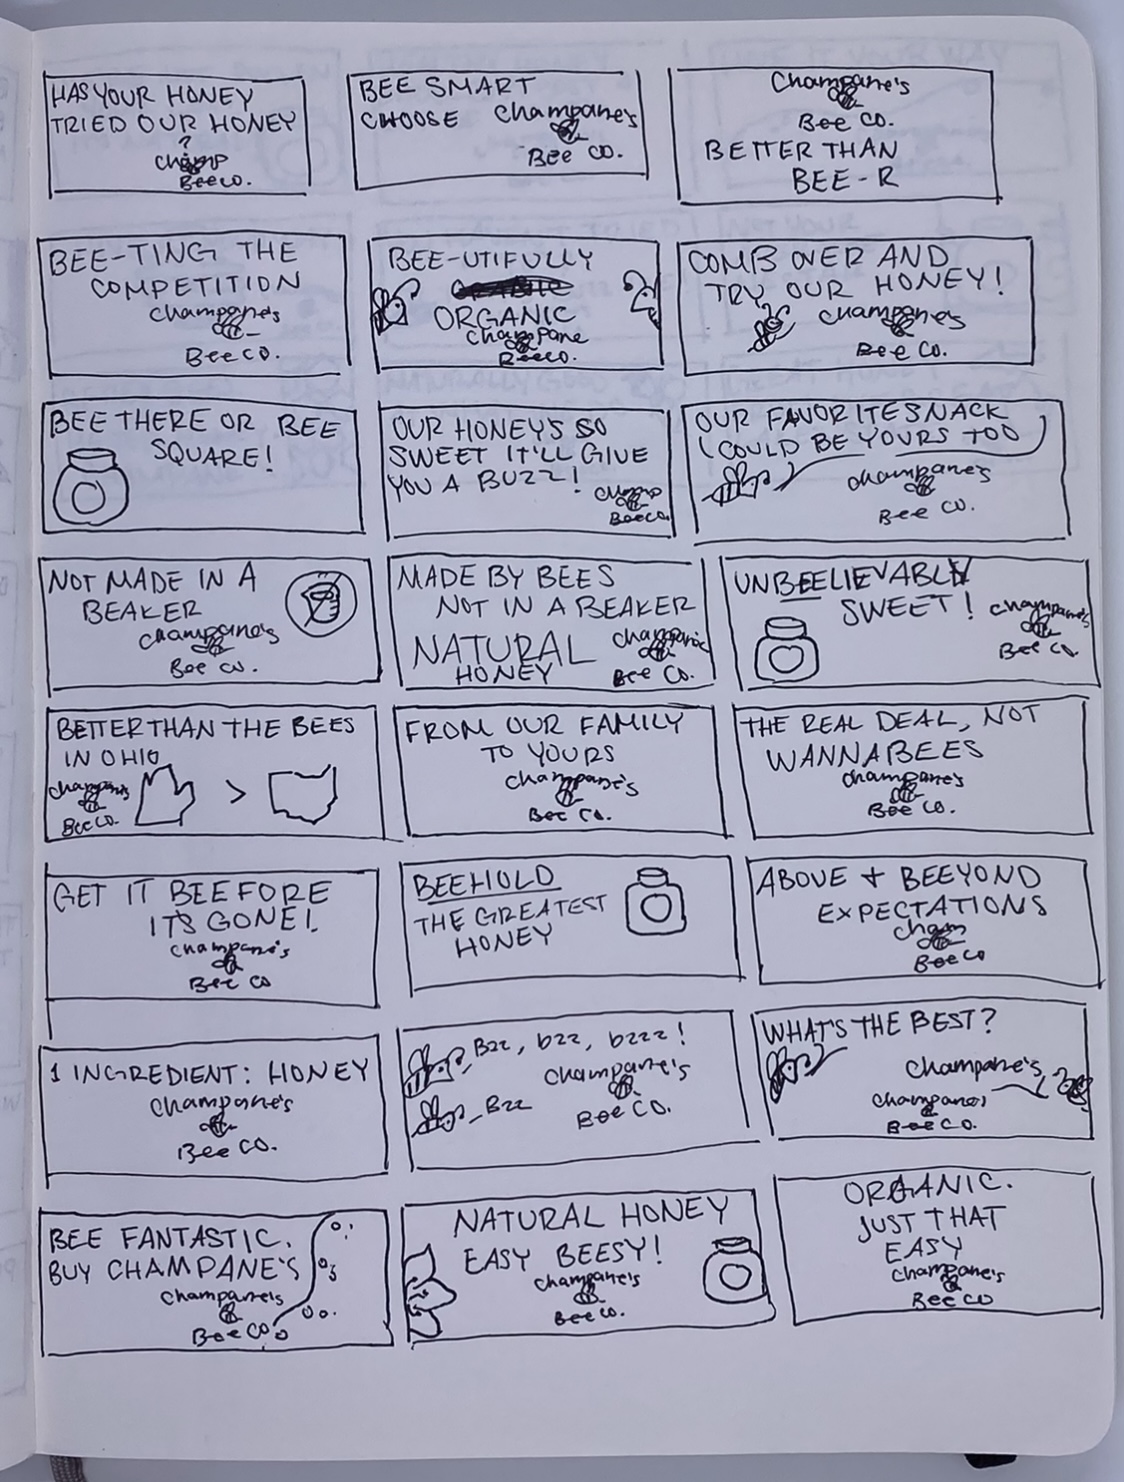 HAS YOUR HONEY
TRIED OUR HONEY
?
Champ
Bee co.
BEE SMART
CHOOSE Champane's
Bee co.
Champane's
Bee co.
BETTER THAN
BEE-R
BEE-TING THE
COMPETITION
Champane's
Bee co.
BEE-UTIFULLY
ORGANIC
Champane
Bee co.
COMB OVER AND
TRY OUR HONEY!
Champane's
Bee co.
BEE THERE OR BEE
SQUARE!
OUR HONEY'S SO
SWEET IT'LL GIVE
YOU A BUZZ!
Champ
Bee co.
OUR FAVORITE SNACK
COULD BE YOURS TOO
Champane's
Bee co.
NOT MADE IN A
BEAKER
Champane's
Bee co.
MADE BY BEES
NOT IN A BEAKER
NATURAL
HONEY
Champane's
Bee co.
UNBEELIEVABLY
SWEET!
Champane's
Bee co.
BETTER THAN THE BEES
IN OHIO
Champane's
Bee co.
>
FROM OUR FAMILY
TO YOURS
Champane's
Bee co.
THE REAL DEAL, NOT
WANNABEES
Champane's
Bee co.
GET IT BEEFORE
IT'S GONE!
Champane's
Bee co
BEEHOLD
THE GREATEST
HONEY
ABOVE + BEEYOND
EXPECTATIONS
Cham
Bee co
1 INGREDIENT: HONEY
Champane's
Bee co.
Bzz, bzz, bzzz!
Bzz
Champane's
Bee co.
WHAT'S THE BEST?
Champane's
Champanes
Bee co.
BEE FANTASTIC.
BUY CHAMPANE'S
Champane's
Bee co.
NATURAL HONEY
EASY BEESY!
Champane's
Bee co.
ORGANIC.
JUST THAT
EASY
Champane's
Bee co